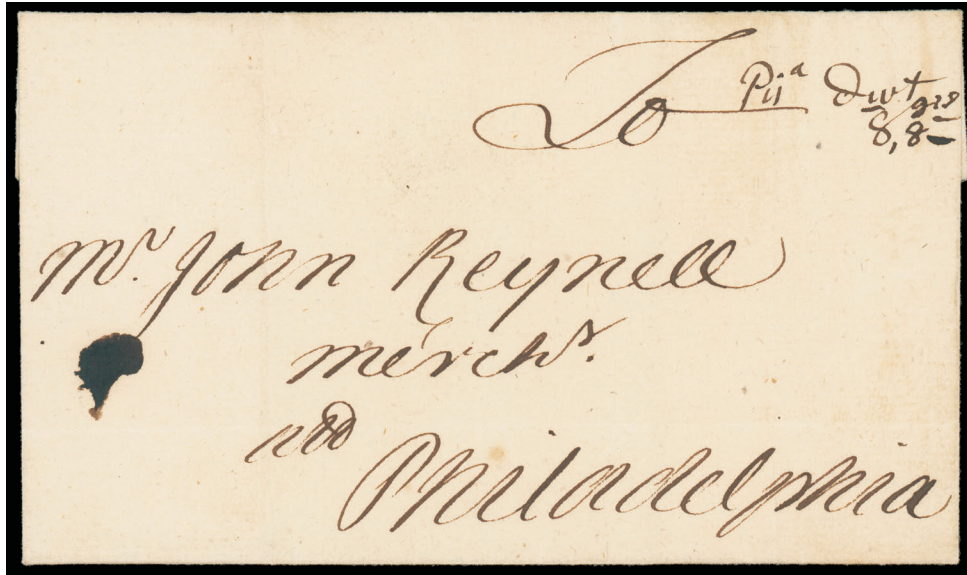 To Piiᵃ dwt grs
8,8
Mr. John Reynell
merchr.
Philadelphia